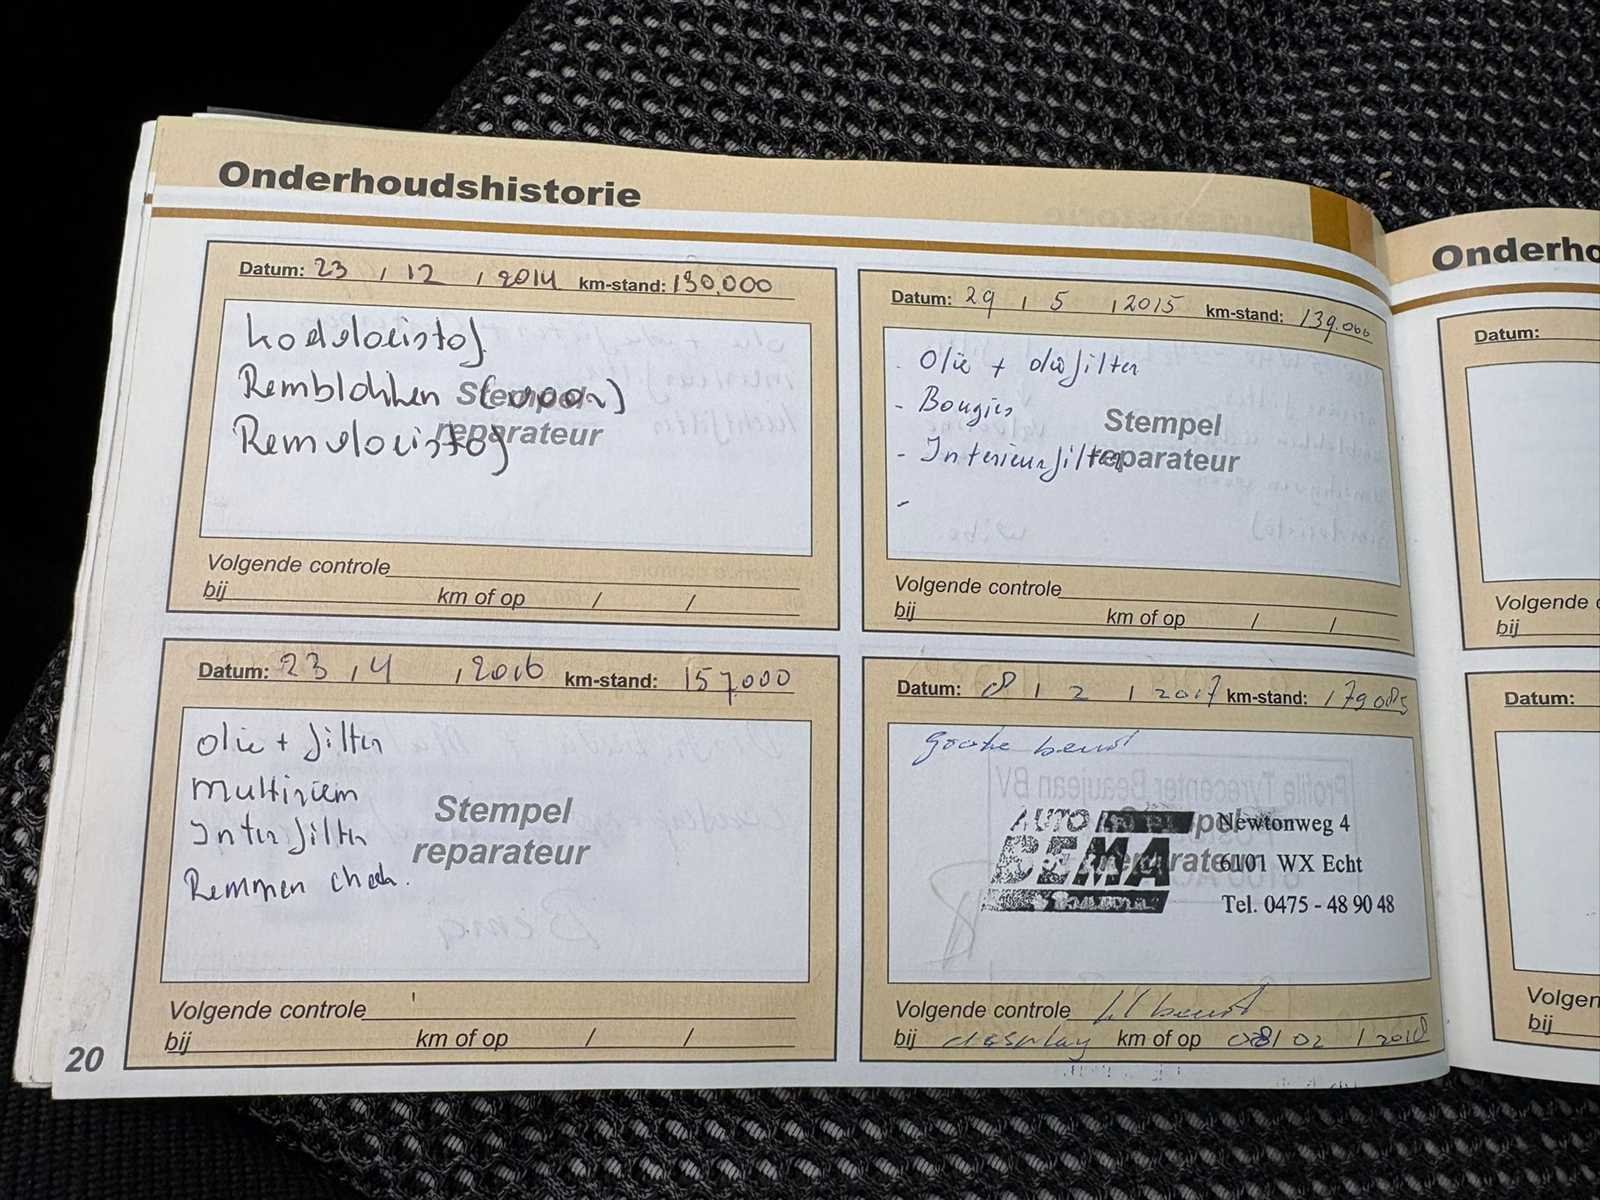 Onderhoudshistorie
Datum: 23 / 12 / 2014 km-stand: 130,000
koelvloeistof
Remblokken (voor)
Remvloeistof
Stempel
reparateur
Volgende controle
bij km of op / /
Datum: 29 / 5 / 2015 km-stand: 139.000
- Olie + oliefilter
- Bougies
- Interieurfilter
-
Stempel
reparateur
Volgende controle
bij km of op / /
Datum: 23 / 4 / 2016 km-stand: 157.000
Olie + filter
Multiriem
Interfilter
Remmen check.
Stempel
reparateur
Volgende controle
bij km of op / /
Datum: 8 / 2 / 2017 km-stand: 179085
grote beurt
AUTO
BEMA
Stempel
reparateur
Newtonweg 4
6101 WX Echt
Tel. 0475 - 48 90 48
Volgende controle kl beurt
bij display km of op 08 / 02 / 2018
20
Onderho
Datum:
Volgende c
bij
Datum:
Volgen
bij